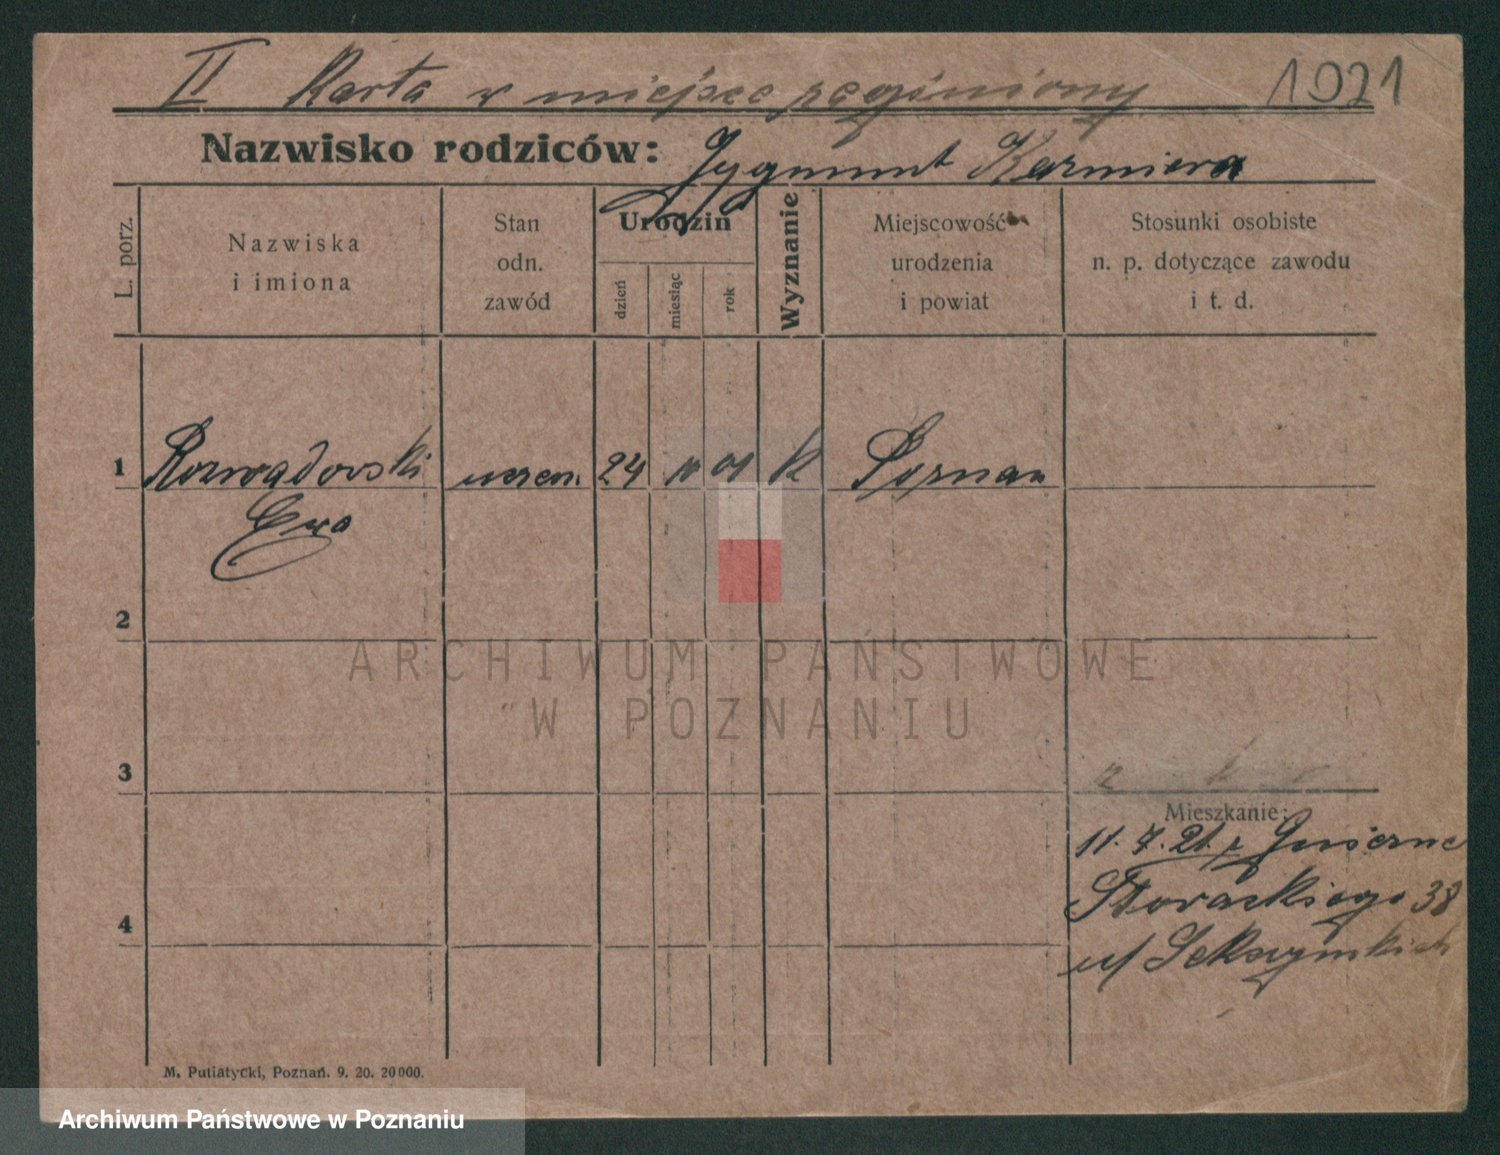 II Karta w miejsce zaginiony 1921
Nazwisko rodziców: Zygmunt Kazmiera
L. porz.
Nazwiska
i imiona
Stan
odn.
zawód
Urodzin
dzień
miesiąc
rok
Wyznanie
Miejscowość
urodzenia
i powiat
Stosunki osobiste
n. p. dotyczące zawodu
i t. d.
1 Rozwadowski uczen. 24 01 k Poznan
Ewa
2
ARCHIWUM PAŃSTWOWE
W POZNANIU
3
Mieszkanie:
11. 7. 21. z
38
4
u/
M. Putiatycki, Poznań. 9. 20. 20000.
Archiwum Państwowe w Poznaniu